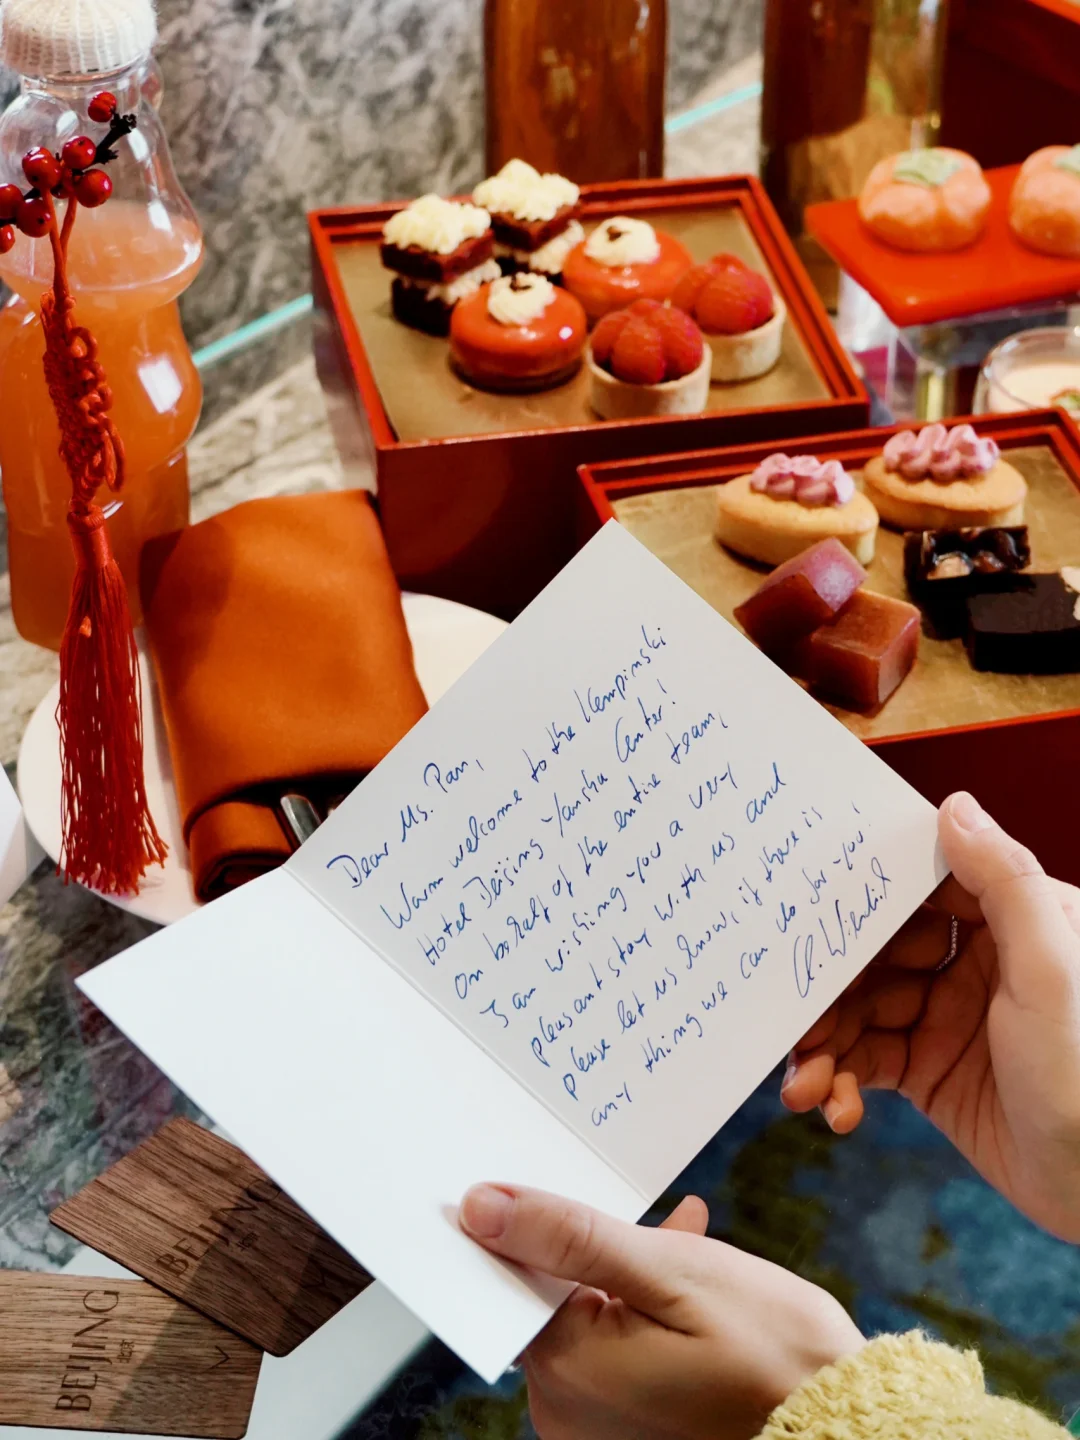 Dear Ms. Pan,
Warm welcome to the Kempinski
Hotel Beijing Yansha Center!
On behalf of the entire team,
I am wishing you a very
pleasant stay with us and
please let us know, if there is
any thing we can do for you!
BEIJING
北京
BEIJING
北京